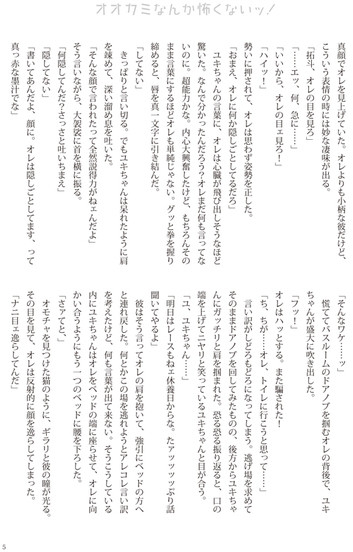 オオカミなんか怖くないッ！
真顔でオレを見上げていた。オレよりも小柄な彼だけど、
こういう表情の時には妙な凄味が出る。
「拓斗、オレの目を見ろ」
「……エッ、何、急に……」
「いいから、オレの目ェ見ろ！」
「ハイッ！」
勢いに押されて、オレは思わず姿勢を正した。
「おまえ、オレに何か隠しごとしてるだろ」
ユキちゃんの言葉に、オレは心臓が飛び出しそうなほど
驚いた。なんで分かったんだろう？オレまだ何も言ってな
いのに。超能力かな。内心大興奮したけど、もちろんその
まま言葉にするほどオレも単純じゃない。グッと拳を握り
締めると、唇を真一文字に引き結んだ。
「してない」
きっぱりと言い切る。でもユキちゃんは呆れたように肩
を竦めて、深い溜め息を吐いた。
「そんな顔で言われたって全然説得力がねェんだよ」
そう言いながら、大袈裟に首を横に振る。
「何隠してんだ？さっさと吐いちまえ」
「隠してない」
「書いてあんだよ、顔に。オレは隠しごとしてます、って
真っ赤な墨汁でな」
「そんなワケ……ッ」
慌ててバスルームのドアノブを掴むオレの背後で、ユキ
ちゃんが盛大に吹き出した。
「フッ！」
オレはハッとする。また騙された！
「ち、ちが……オレ、トイレに行こうと思って……」
言い訳がしどろもどろになってしまう。逃げ場を求めて
そのままドアノブを回してみたものの、後方からユキちゃ
んにガッチリと肩を掴まれた。恐る恐る振り返ると、口の
端を上げてニヤリと笑っているユキちゃんと目が合う。
「ユ、ユキちゃん……」
「明日はレースもねェ休養日からな。たアッッッッぷり話
聞いてやるよ」
彼はそう言ってオレの肩を抱いて、強引にベッドの方へ
と連れ戻した。何とかこの場を逃れようとアレコレ言い訳
を考えたけど、何も言葉が出て来ない。そうこうしている
内にユキちゃんはオレをベッドの端に座らせて、オレに向
かい合うようにもう一つのベッドに腰を下ろした。
「さァてと、」
オモチャを見つけた猫のように、ギラリと彼の瞳が光る。
その目を見て、オレは反射的に顔を逸らしてしまった。
「ナニ目ェ逸らしてんだ」
5